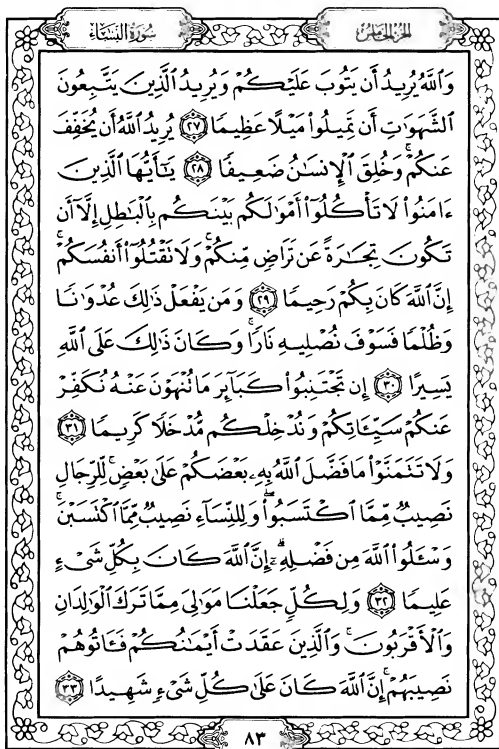 سورة النساء
الجزء الخامس
وَٱللَّهُ يُرِيدُ أَن يَتُوبَ عَلَيْكُمْ وَيُرِيدُ ٱلَّذِينَ يَتَّبِعُونَ
ٱلشَّهَوَٰتِ أَن تَمِيلُوا۟ مَيْلًا عَظِيمًا ٢٧ يُرِيدُ ٱللَّهُ أَن يُخَفِّفَ
عَنكُمْ ۚ وَخُلِقَ ٱلْإِنسَٰنُ ضَعِيفًا ٢٨ يَٰٓأَيُّهَا ٱلَّذِينَ
ءَامَنُوا۟ لَا تَأْكُلُوٓا۟ أَمْوَٰلَكُم بَيْنَكُم بِٱلْبَٰطِلِ إِلَّآ أَن
تَكُونَ تِجَٰرَةً عَن تَرَاضٍ مِّنكُمْ ۚ وَلَا تَقْتُلُوٓا۟ أَنفُسَكُمْ ۚ
إِنَّ ٱللَّهَ كَانَ بِكُمْ رَحِيمًا ٢٩ وَمَن يَفْعَلْ ذَٰلِكَ عُدْوَٰنًا
وَظُلْمًا فَسَوْفَ نُصْلِيهِ نَارًا ۚ وَكَانَ ذَٰلِكَ عَلَى ٱللَّهِ
يَسِيرًا ٣٠ إِن تَجْتَنِبُوا۟ كَبَآئِرَ مَا تُنْهَوْنَ عَنْهُ نُكَفِّرْ
عَنكُمْ سَيِّـَٔاتِكُمْ وَنُدْخِلْكُم مُّدْخَلًا كَرِيمًا ٣١
وَلَا تَتَمَنَّوْا۟ مَا فَضَّلَ ٱللَّهُ بِهِۦ بَعْضَكُمْ عَلَىٰ بَعْضٍ ۚ لِّلرِّجَالِ
نَصِيبٌ مِّمَّا ٱكْتَسَبُوا۟ ۖ وَلِلنِّسَآءِ نَصِيبٌ مِّمَّا ٱكْتَسَبْنَ ۚ
وَسْـَٔلُوا۟ ٱللَّهَ مِن فَضْلِهِۦٓ ۗ إِنَّ ٱللَّهَ كَانَ بِكُلِّ شَىْءٍ
عَلِيمًا ٣٢ وَلِكُلٍّ جَعَلْنَا مَوَٰلِىَ مِمَّا تَرَكَ ٱلْوَٰلِدَانِ
وَٱلْأَقْرَبُونَ ۚ وَٱلَّذِينَ عَقَدَتْ أَيْمَٰنُكُمْ فَـَٔاتُوهُمْ
نَصِيبَهُمْ ۚ إِنَّ ٱللَّهَ كَانَ عَلَىٰ كُلِّ شَىْءٍ شَهِيدًا ٣٣
٨٣